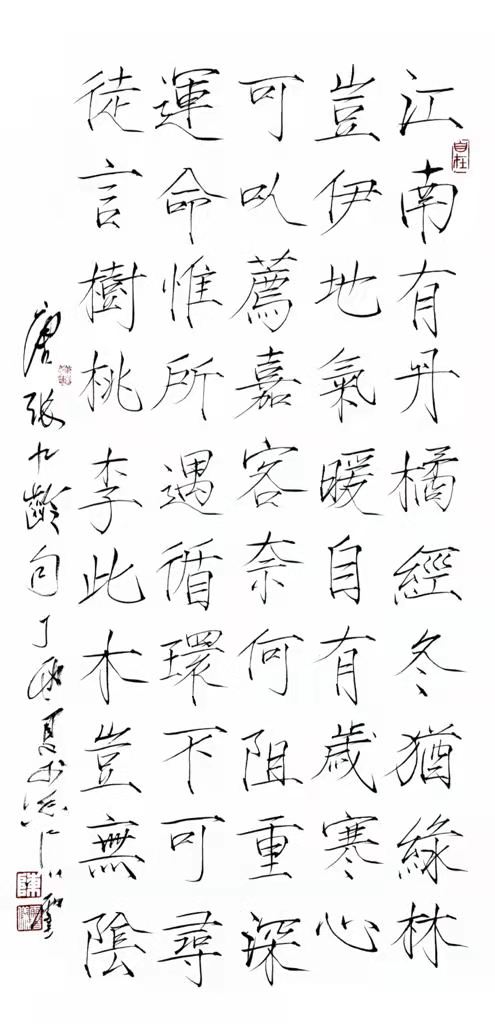 江南有丹橘經冬猶綠林
豈伊地氣暖自有歲寒心
可以薦嘉客奈何阻重深
運命惟所遇循環不可尋
徒言樹桃李此木豈無陰
唐張九齡句丁酉夏
自在
陳